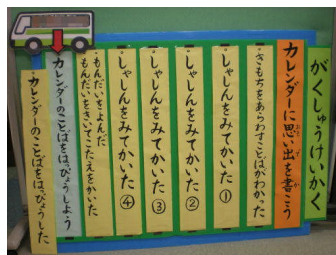 がくしゅうけいかく
カレンダーに思い出を書こう
・きもちをあらわすことばがわかった
・しゃしんをみてかいた①
・しゃしんをみてかいた②
・しゃしんをみてかいた③
・しゃしんをみてかいた④
・もんだいをよんだ
もんだいをきいてこたえをかいた
カレンダーのことばをはっぴょうしよう
カレンダーのことばをはっぴょうした